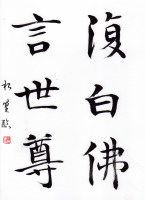 復白佛
言世尊